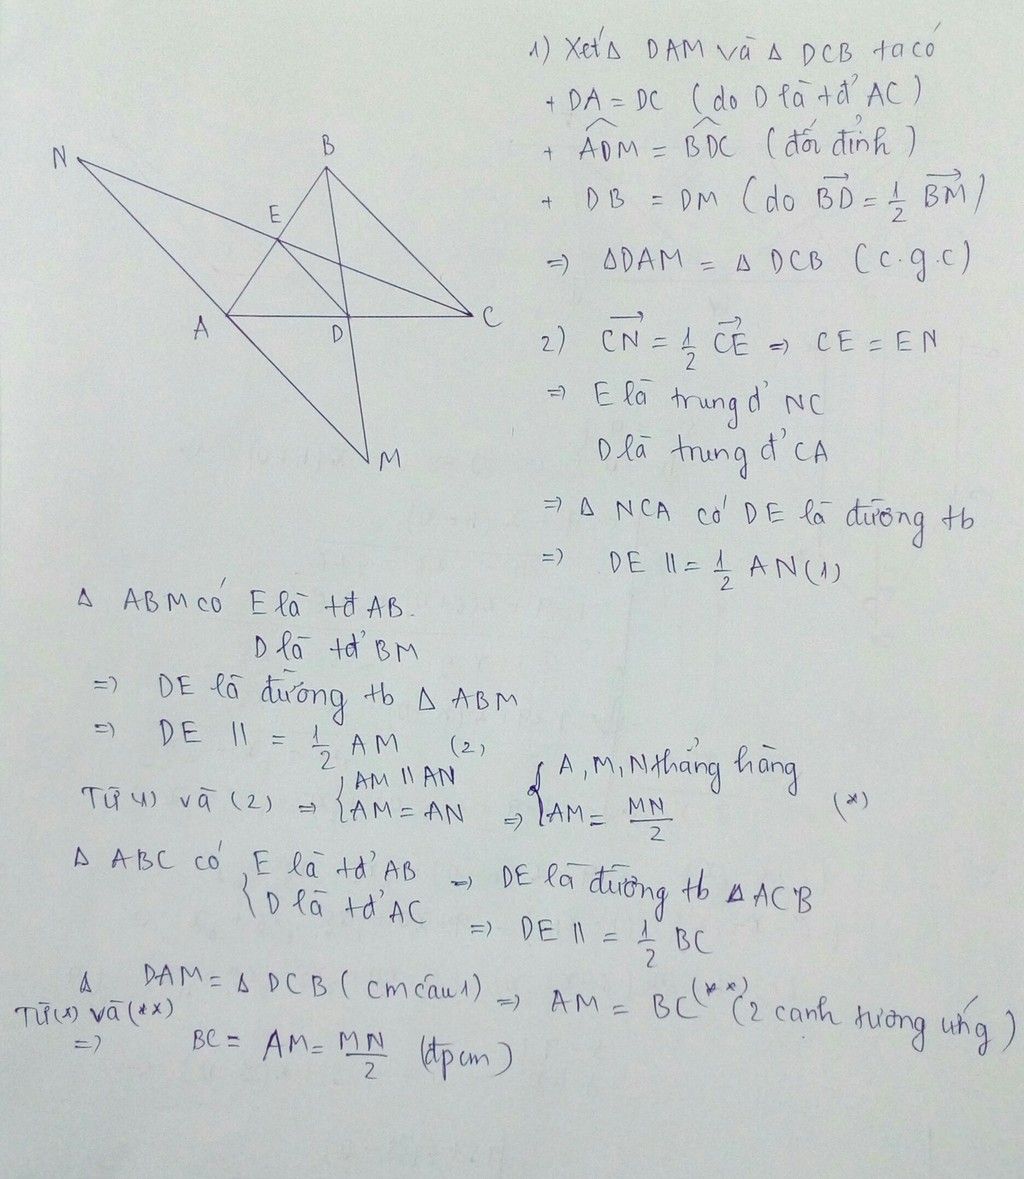 N
B
E
A
D
C
M
1) Xét Δ DAM và Δ DCB ta có
+ DA = DC (do D là tđ' AC)
+ ADM = BDC (đối đỉnh)
+ DB = DM (do BD = 1/2 BM)
=> ΔDAM = Δ DCB (c.g.c)
2) CN = 1/2 CE => CE = EN
=> E là trung đ' NC
D là trung đ' CA
=> Δ NCA có DE là đường tb
=> DE // = 1/2 AN (1)
Δ ABM có E là tđ AB.
D là tđ' BM
=> DE là đường tb Δ ABM
=> DE // = 1/2 AM (2)
Từ (1) và (2) => { AM // AN
AM = AN => { A, M, N thẳng hàng
AM = MN/2 (*)
Δ ABC có { E là tđ' AB
D là tđ' AC => DE là đường tb Δ ACB
=> DE // = 1/2 BC
Δ DAM = Δ DCB (cm câu 1) => AM = BC (**) (2 cạnh tương ứng)
Từ (*) và (**)
=> BC = AM = MN/2 (đpcm)